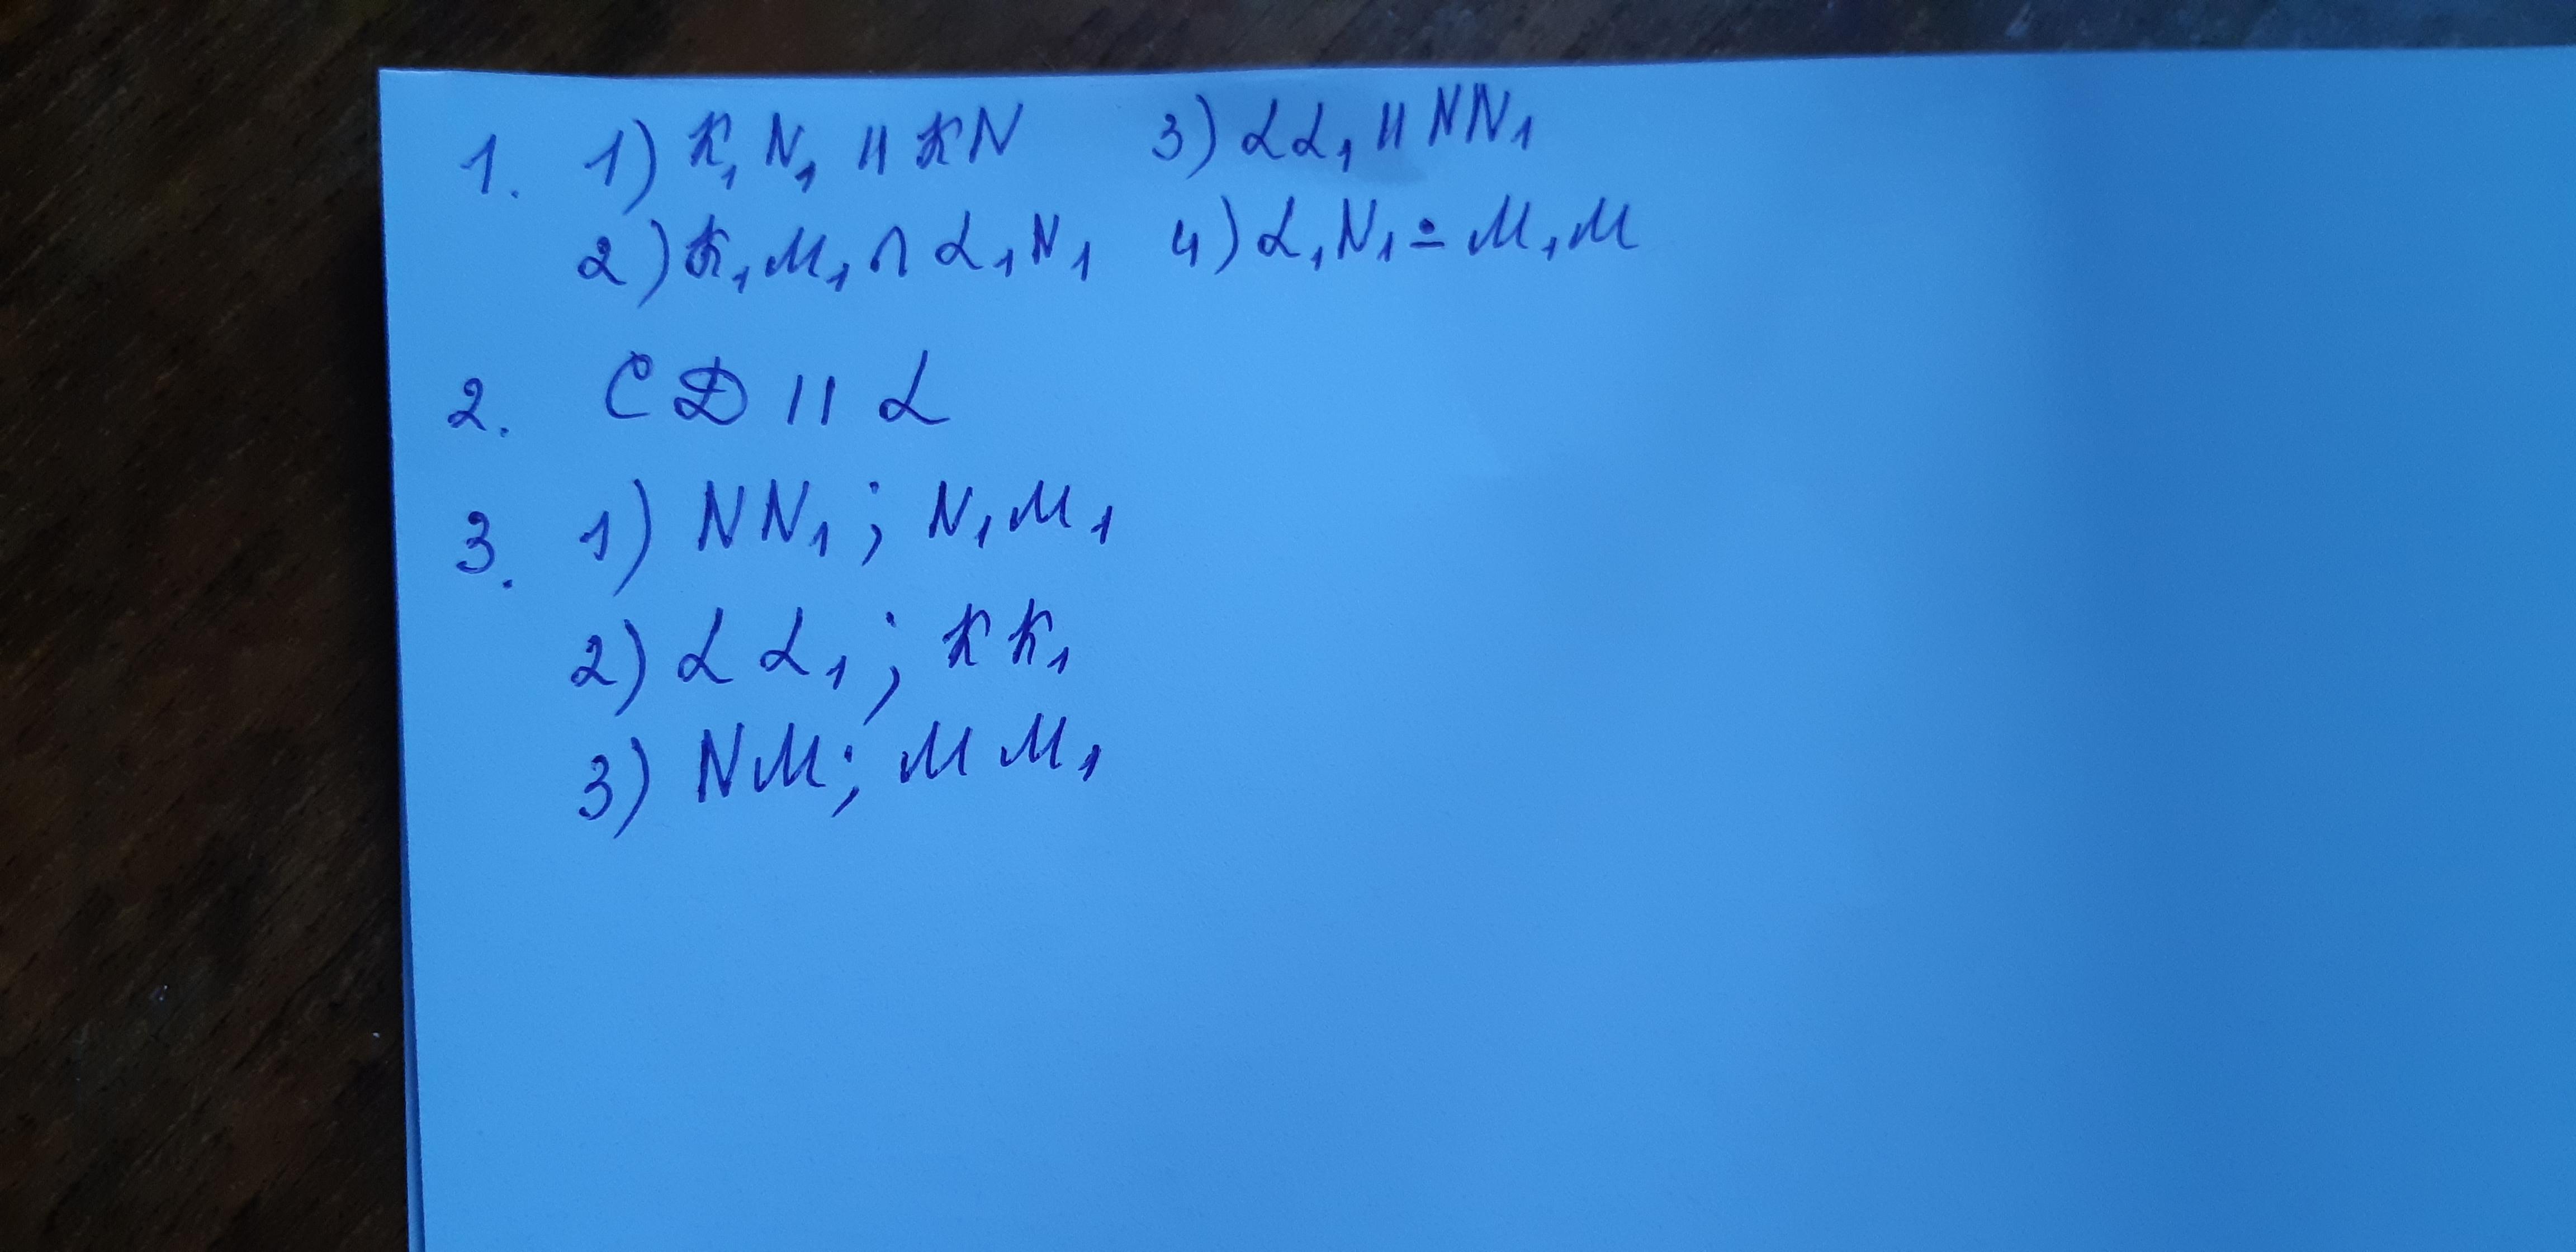 1. 1) K₁N₁ || KN 3) LL₁ || NN₁
2) K₁M₁ ∩ L₁N₁ 4) L₁N₁ ∸ M₁M
2. CD || L
3. 1) NN₁; N₁M₁
2) LL₁; KK₁
3) NM; MM₁